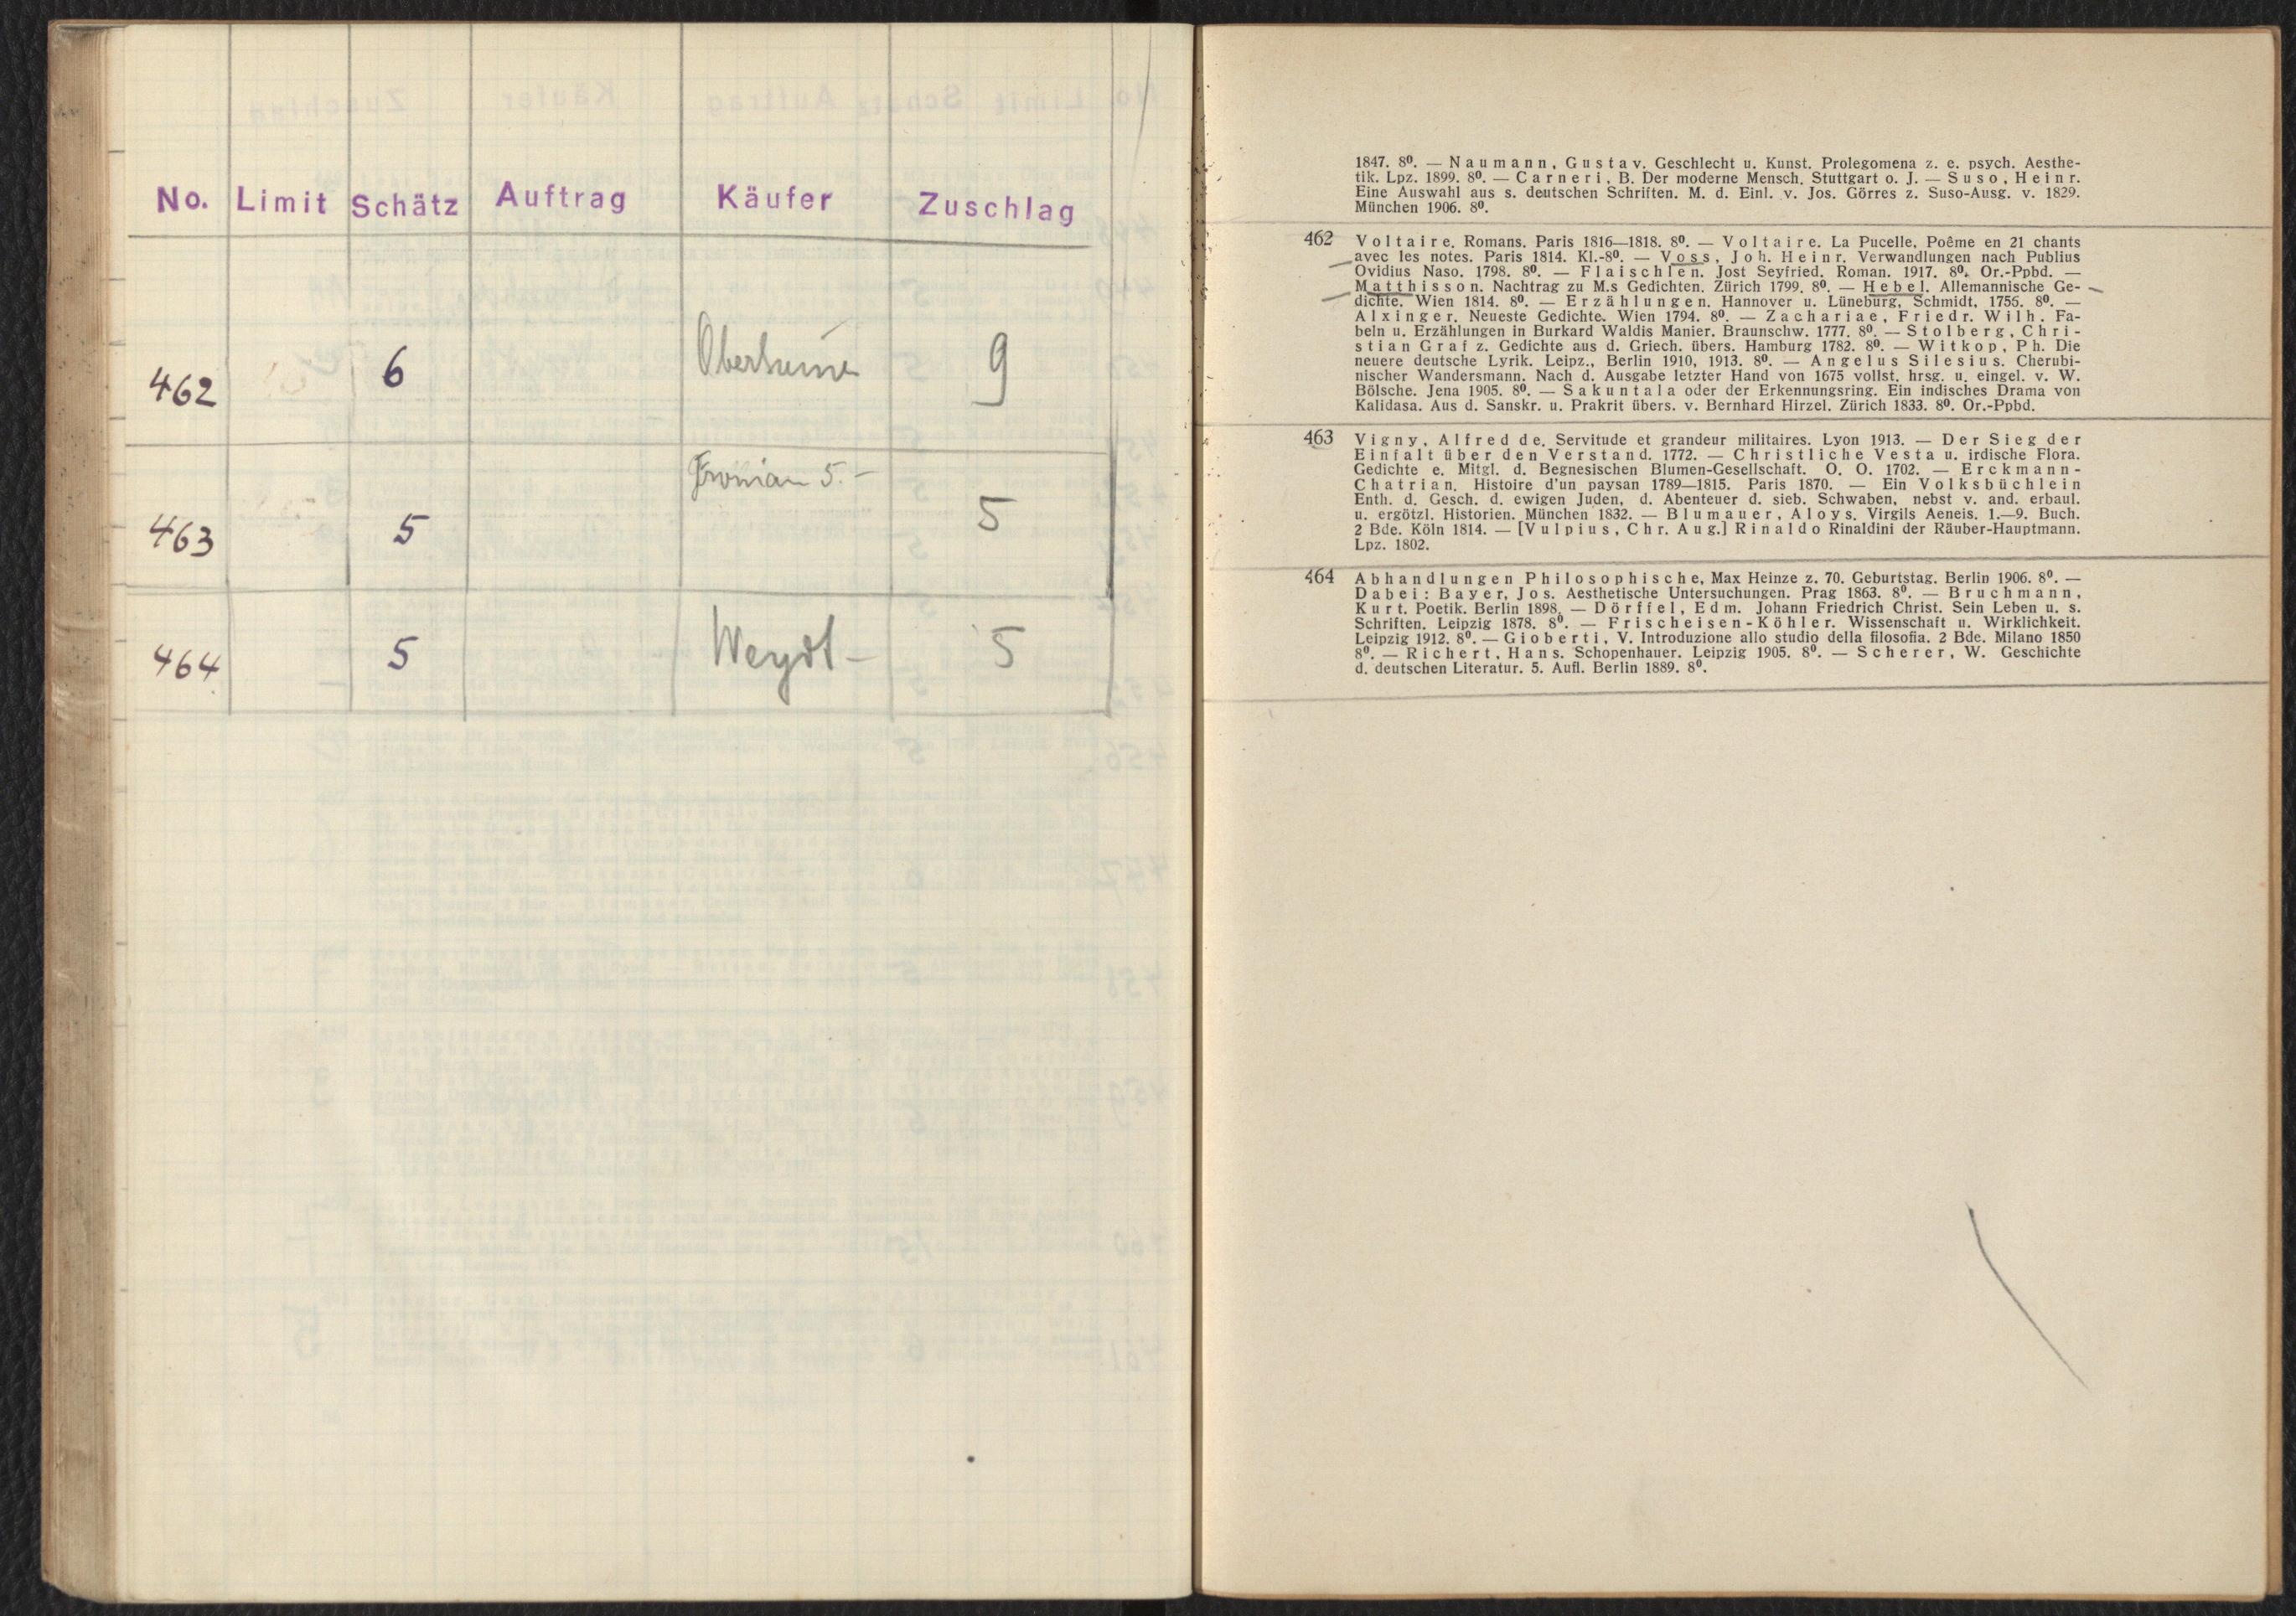 No. Limit Schätz Auftrag Käufer Zuschlag
462 6 9
463 5 5.- 5
464 5 Weydt - 5
1847. 8⁰. — Naumann, Gustav. Geschlecht u. Kunst. Prolegomena z. e. psych. Aesthe-
tik. Lpz. 1899. 8⁰. — Carneri, B. Der moderne Mensch. Stuttgart o. J. — Suso, Heinr.
Eine Auswahl aus s. deutschen Schriften. M. d. Einl. v. Jos. Görres z. Suso-Ausg. v. 1829.
München 1906. 8⁰.
462 Voltaire. Romans. Paris 1816—1818. 8⁰. — Voltaire. La Pucelle, Poême en 21 chants
avec les notes. Paris 1814. Kl.-8⁰. — Voss, Joh. Heinr. Verwandlungen nach Publius
Ovidius Naso. 1798. 8⁰. — Flaischlen. Jost Seyfried. Roman. 1917. 8⁰. Or.-Ppbd. —
Matthisson. Nachtrag zu M.s Gedichten. Zürich 1799. 8⁰. — Hebel. Allemannische Ge-
dichte. Wien 1814. 8⁰. — Erzählungen. Hannover u. Lüneburg, Schmidt, 1756. 8⁰. —
Alxinger. Neueste Gedichte. Wien 1794. 8⁰. — Zachariae, Friedr. Wilh. Fa-
beln u. Erzählungen in Burkard Waldis Manier. Braunschw. 1777. 8⁰. — Stolberg, Chri-
stian Graf z. Gedichte aus d. Griech. übers. Hamburg 1782. 8⁰. — Witkop, Ph. Die
neuere deutsche Lyrik. Leipz., Berlin 1910, 1913. 8⁰. — Angelus Silesius. Cherubi-
nischer Wandersmann. Nach d. Ausgabe letzter Hand von 1675 vollst. hrsg. u. eingel. v. W.
Bölsche. Jena 1905. 8⁰. — Sakuntala oder der Erkennungsring. Ein indisches Drama von
Kalidasa. Aus d. Sanskr. u. Prakrit übers. v. Bernhard Hirzel. Zürich 1833. 8⁰. Or.-Ppbd.
463 Vigny, Alfred de. Servitude et grandeur militaires. Lyon 1913. — Der Sieg der
Einfalt über den Verstand. 1772. — Christliche Vesta u. irdische Flora.
Gedichte e. Mitgl. d. Begnesischen Blumen-Gesellschaft. O. O. 1702. — Erckmann-
Chatrian. Histoire d'un paysan 1789—1815. Paris 1870. — Ein Volksbüchlein
Enth. d. Gesch. d. ewigen Juden, d. Abenteuer d. sieb. Schwaben, nebst v. and. erbaul.
u. ergötzl. Historien. München 1832. — Blumauer, Aloys. Virgils Aeneis. 1.—9. Buch.
2 Bde. Köln 1814. — [Vulpius, Chr. Aug.] Rinaldo Rinaldini der Räuber-Hauptmann.
Lpz. 1802.
464 Abhandlungen Philosophische, Max Heinze z. 70. Geburtstag. Berlin 1906. 8⁰. —
Dabei: Bayer, Jos. Aesthetische Untersuchungen. Prag 1863. 8⁰. — Bruchmann,
Kurt. Poetik. Berlin 1898. — Dörffel, Edm. Johann Friedrich Christ. Sein Leben u. s.
Schriften. Leipzig 1878. 8⁰. — Frischeisen-Köhler. Wissenschaft u. Wirklichkeit.
Leipzig 1912. 8⁰. — Gioberti, V. Introduzione allo studio della filosofia. 2 Bde. Milano 1850
8⁰. — Richert, Hans. Schopenhauer. Leipzig 1905. 8⁰. — Scherer, W. Geschichte
d. deutschen Literatur. 5. Aufl. Berlin 1889. 8⁰.